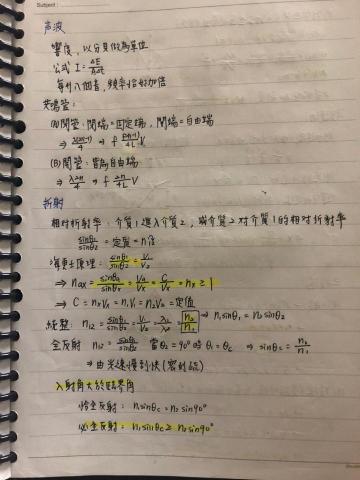 Subject:
声波
響度，以分貝做為單位
公式 I=ΔE/AΔt
每升八個音，頻率恰好加倍
共鳴管：
(A)閉管：閉端=固定端，開端=自由端
⇒ λ(2n-1)/4 ⇒ f (2n-1)/4L V
(B)開管：皆為自由端
⇒ λ2n/4 ⇒ f 2n/4L V
折射
相對折射率：介質1進入介質2，或介質2對介質1的相對折射率
sinθ₁/sinθ₂ = 定質 = n₁₂
海更士原理：sinθ₁/sinθ₂ = V₁/V₂
⇒ nax = sinθa/sinθx = Va/Vx = C/Vx = nx ≥ 1
⇒ C = nxVx = n₁V₁ = n₂V₂ = 定值
統整 n₁₂ = sinθ₁/sinθ₂ = V₁/V₂ = λ₁/λ₂ = n₂/n₁ ⇒ n₁sinθ₁ = n₂sinθ₂
全反射 n₁₂ = sinθ₁/sinθ₂ 當θ₂=90°時 θ₁=θc ⇒ sinθc = n₂/n₁
⇒ 由光速慢到快(密到疏)
入射角大於臨界角
恰全反射：n₁sinθc = n₂sin90°
必全反射：n₁sinθc ≥ n₂sin90°